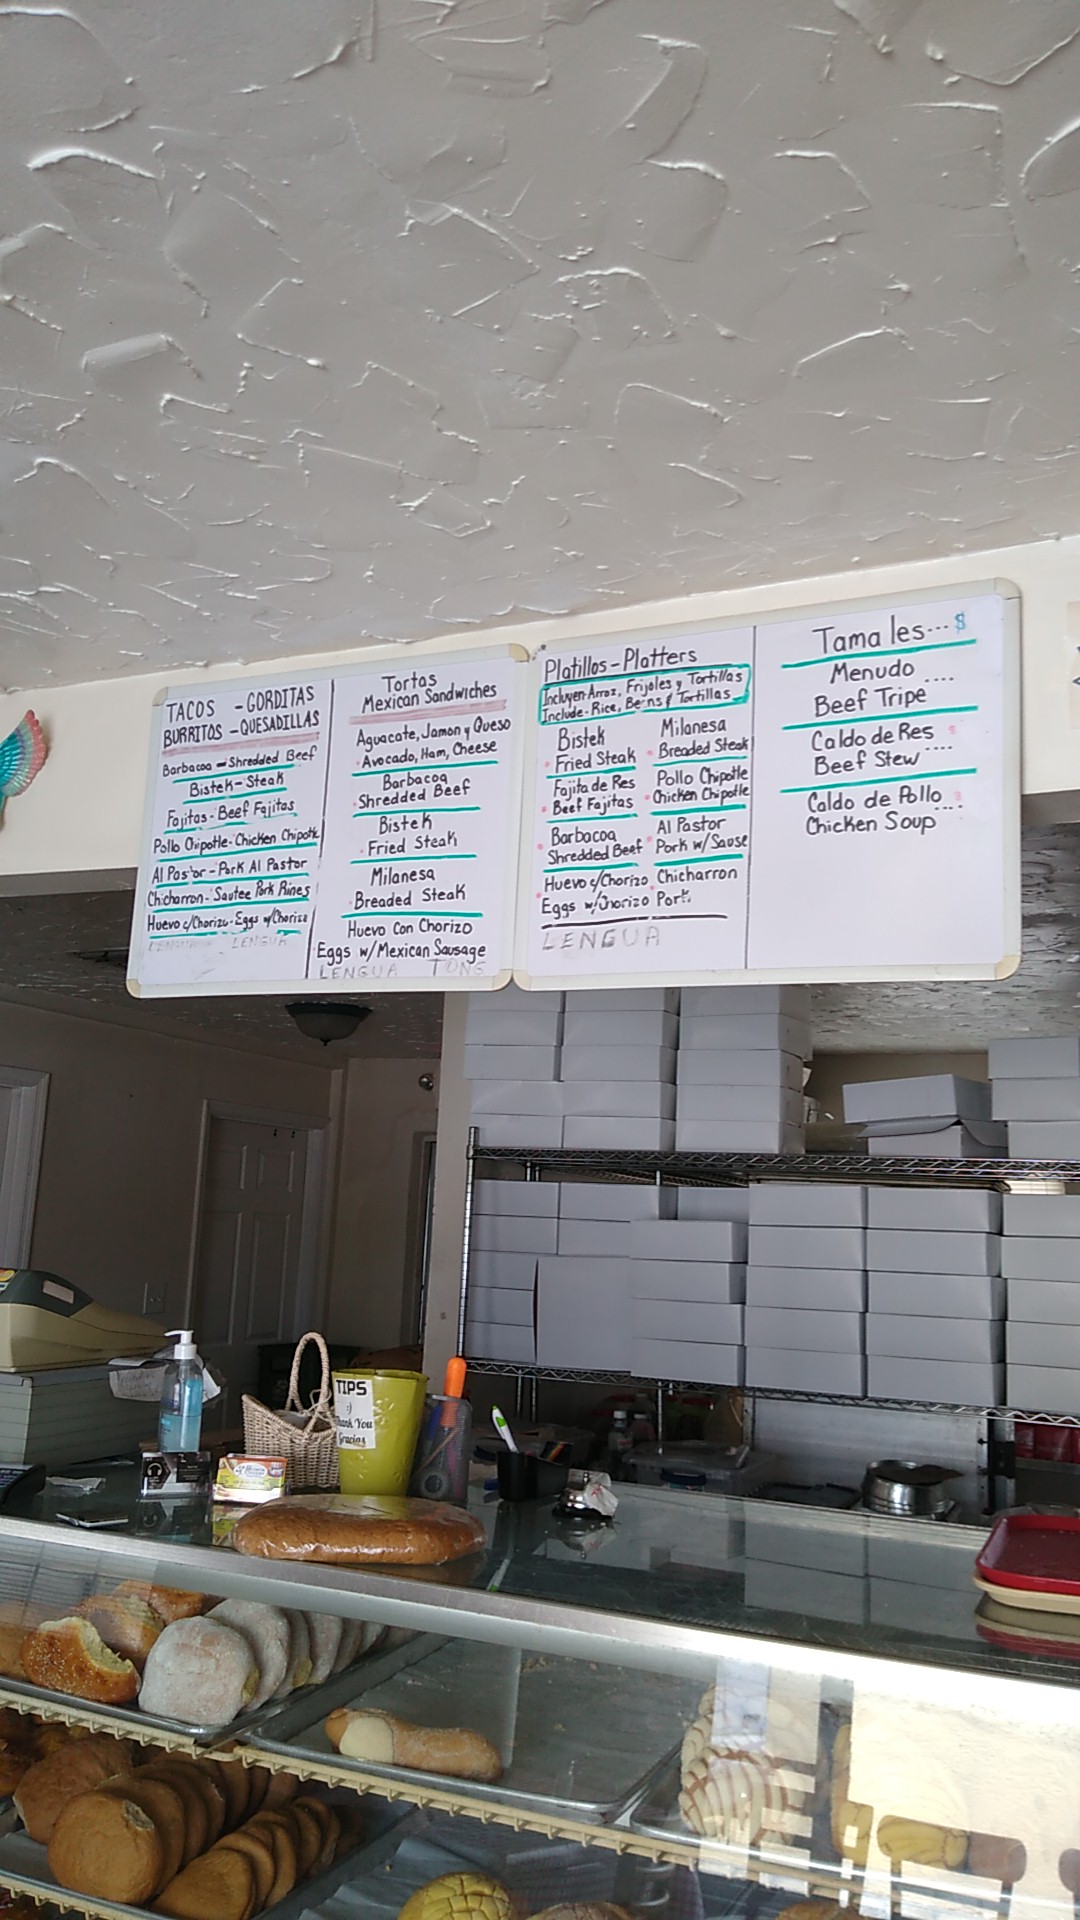 TACOS - GORDITAS
BURRITOS - QUESADILLAS
Barbacoa - Shredded Beef
Bistek - Steak
Fajitas - Beef Fajitas
Pollo Chipotle - Chicken Chipotle
Al Pastor - Pork Al Pastor
Chicharron - Sautee Pork Rines
Huevo c/Chorizo - Eggs w/Chorizo
LENGUA
Tortas
Mexican Sandwiches
Aguacate, Jamon y Queso
Avocado, Ham, Cheese
Barbacoa
Shredded Beef
Bistek
Fried Steak
Milanesa
Breaded Steak
Huevo Con Chorizo
Eggs w/Mexican Sausage
LENGUA TONG
Platillos - Platters
Incluyen - Arroz, Frijoles y Tortillas
Include - Rice, Beans & Tortillas
Bistek
Fried Steak
Fajita de Res
Beef Fajitas
Barbacoa
Shredded Beef
Huevo c/Chorizo
Eggs w/Chorizo
LENGUA
Milanesa
Breaded Steak
Pollo Chipotle
Chicken Chipotle
Al Pastor
Pork w/Sause
Chicharron
Pork
Tamales... $
Menudo ....
Beef Tripe
Caldo de Res ....
Beef Stew
Caldo de Pollo ....
Chicken Soup
TIPS
:)
Thank You
Gracias